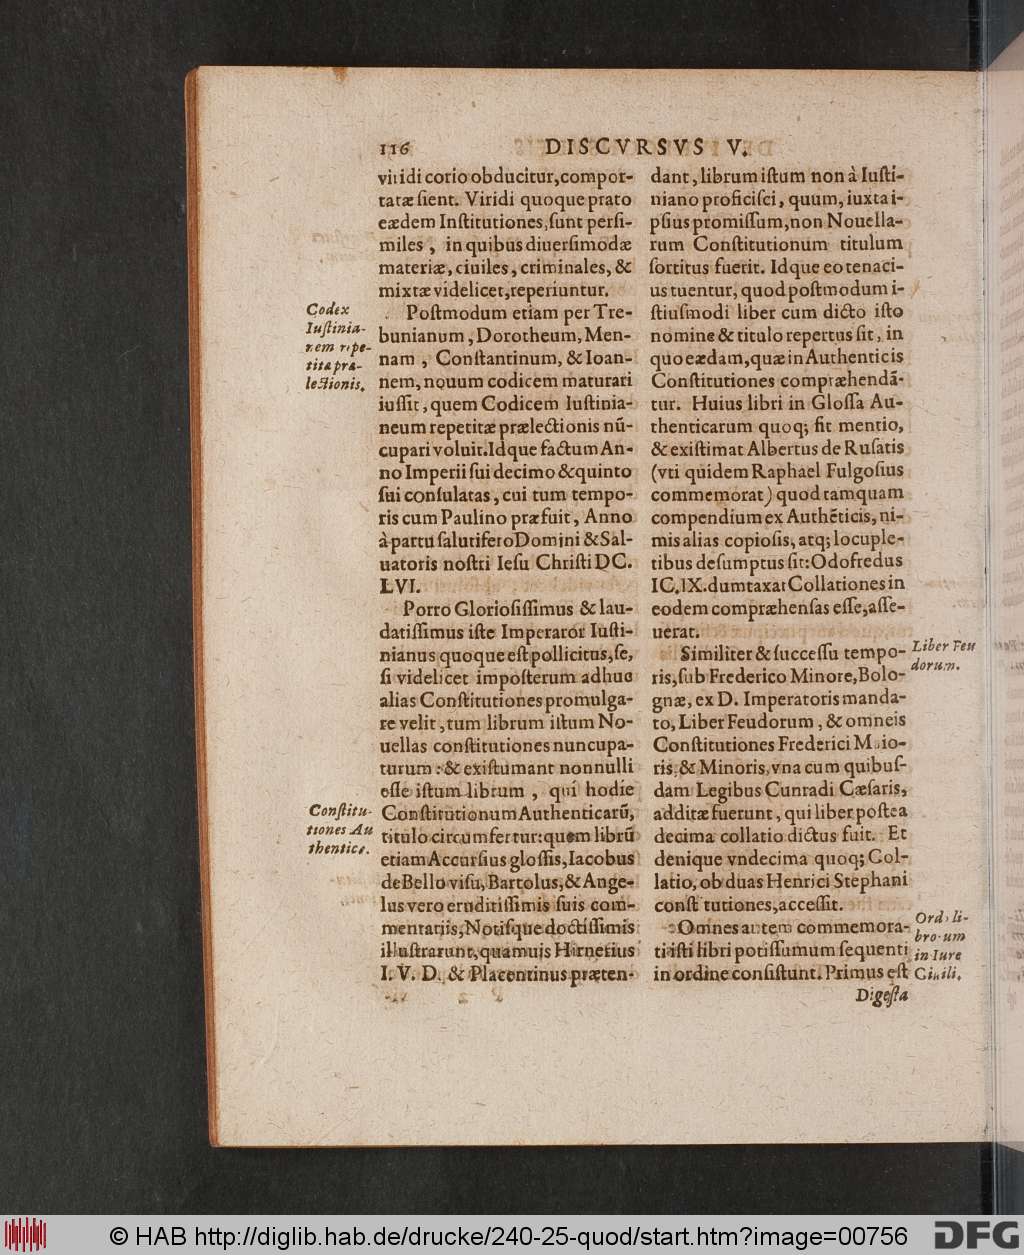 116 DISCVRSVS V.
viridi corio obducitur, compor-
tatæ sient. Viridi quoque prato
eædem Institutiones, sunt persi-
miles, in quibus diuersimodæ
materiæ, ciuiles, criminales, &
mixtæ videlicet, reperiuntur.
Codex
Iustinia-
nem repe-
titæ præ-
lectionis.
Postmodum etiam per Tre-
bunianum, Dorotheum, Men-
nam, Constantinum, & Ioan-
nem, nouum codicem maturari
iussit, quem Codicem Iustinia-
neum repetitæ prælectionis nū-
cupari voluit. Idque factum An-
no Imperii sui decimo & quinto
sui consulatas, cui tum tempo-
ris cum Paulino præfuit, Anno
à partu salutifero Domini & Sal-
uatoris nostri Iesu Christi DC.
LVI.
Porro Gloriosissimus & lau-
datissimus iste Imperator Iusti-
nianus quoque est pollicitus, se,
si videlicet imposterum adhuc
alias Constitutiones promulga-
re velit, tum librum istum No-
uellas constitutiones nuncupa-
turum: & existumant nonnulli
esse istum librum, qui hodie
Constitu-
tiones Au
thenticæ.
Constitutionum Authenticarū,
titulo circumfertur: quem librū
etiam Accursius glossis, Iacobus
de Bello visu, Bartolus, & Ange-
lus vero eruditissimis suis com-
mentariis, Notisque doctissimis
illustrarunt, quamuis Hirnerius
I. V. D. & Placentinus præten-
dant, librum istum non à Iusti-
niano proficisci, quum, iuxta i-
psius promissum, non Nouella-
rum Constitutionum titulum
sortitus fuerit. Idque eo tenaci-
us tuentur, quod postmodum i-
stiusmodi liber cum dicto isto
nomine & titulo repertus sit, in
quo eædam, quæ in Authenticis
Constitutiones compræhendā-
tur. Huius libri in Glossa Au-
thenticarum quoq; fit mentio,
& existimat Albertus de Rusatis
(vti quidem Raphael Fulgosius
commemorat) quod tamquam
compendium ex Authēticis, ni-
mis alias copiosis, atq; locuple-
tibus desumptus sit: Odofredus
IC. IX. dumtaxat Collationes in
eodem compræhensas esse, asse-
uerat.
Liber Feu
dorum.
Similiter & successu tempo-
ris, sub Frederico Minore, Bolo-
gnæ, ex D. Imperatoris manda-
to, Liber Feudorum, & omneis
Constitutiones Frederici Maio-
ris, & Minoris, vna cum quibus-
dam Legibus Cunradi Cæsaris,
additæ fuerunt, qui liber postea
decima collatio dictus fuit. Et
denique vndecima quoq; Col-
latio, ob duas Henrici Stephani
constitutiones, accessit.
Ordo li-
brorum
in Iure
Ciuili.
Omnes autem commemora-
ti isti libri potissumum sequenti
in ordine consistunt. Primus est
Digesta
© HAB http://diglib.hab.de/drucke/240-25-quod/start.htm?image=00756
DFG